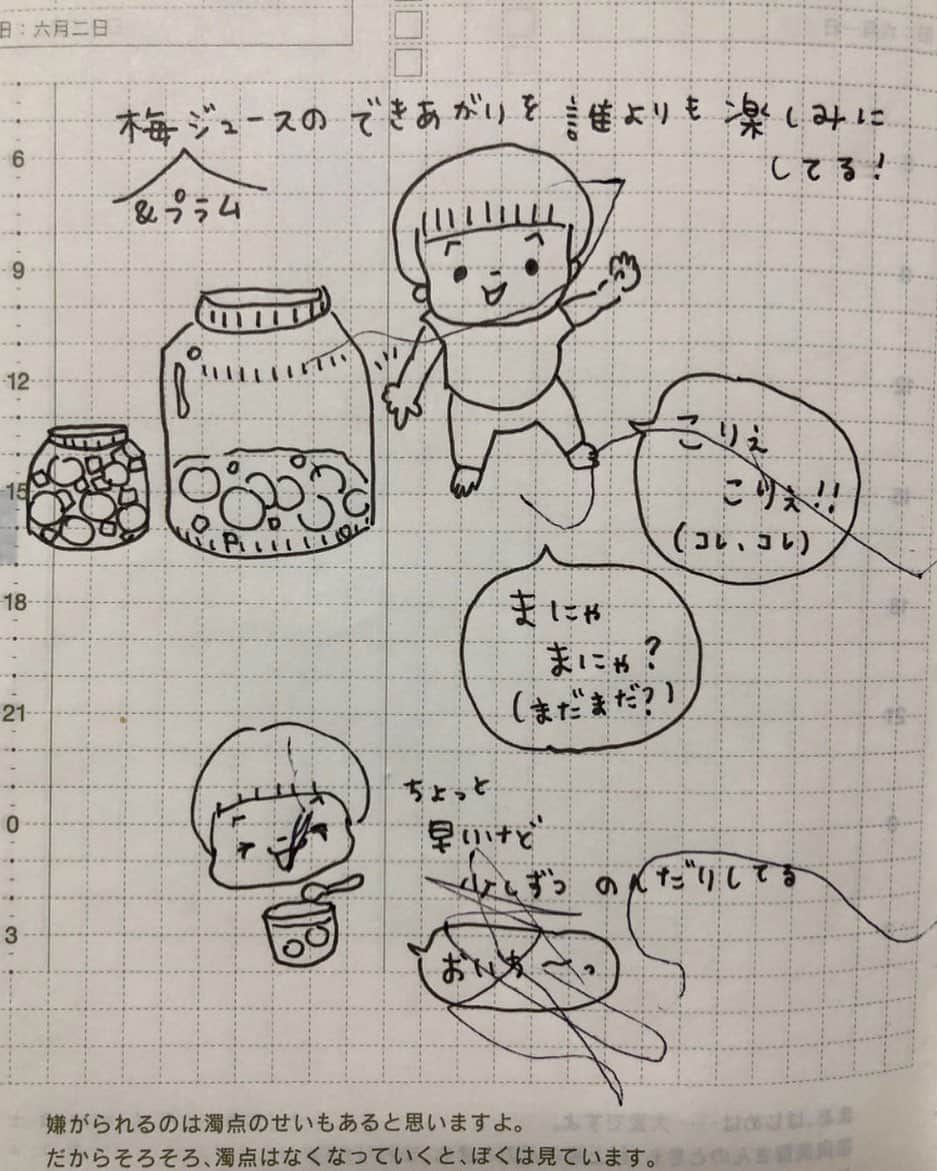 日：六月二日
梅ジュースの できあがりを 誰よりも 楽しみに
してる！
&プラム
6
9
12
15
18
21
0
3
こりぇ
こりぇ!!
(コレ、コレ)
まにゃ
まにゃ？
(まだまだ？)
ちょっと
早いけど
少しずつ のんだりしてる
おいち〜っ
嫌がられるのは濁点のせいもあると思いますよ。
だからそろそろ、濁点はなくなっていくと、ぼくは見ています。